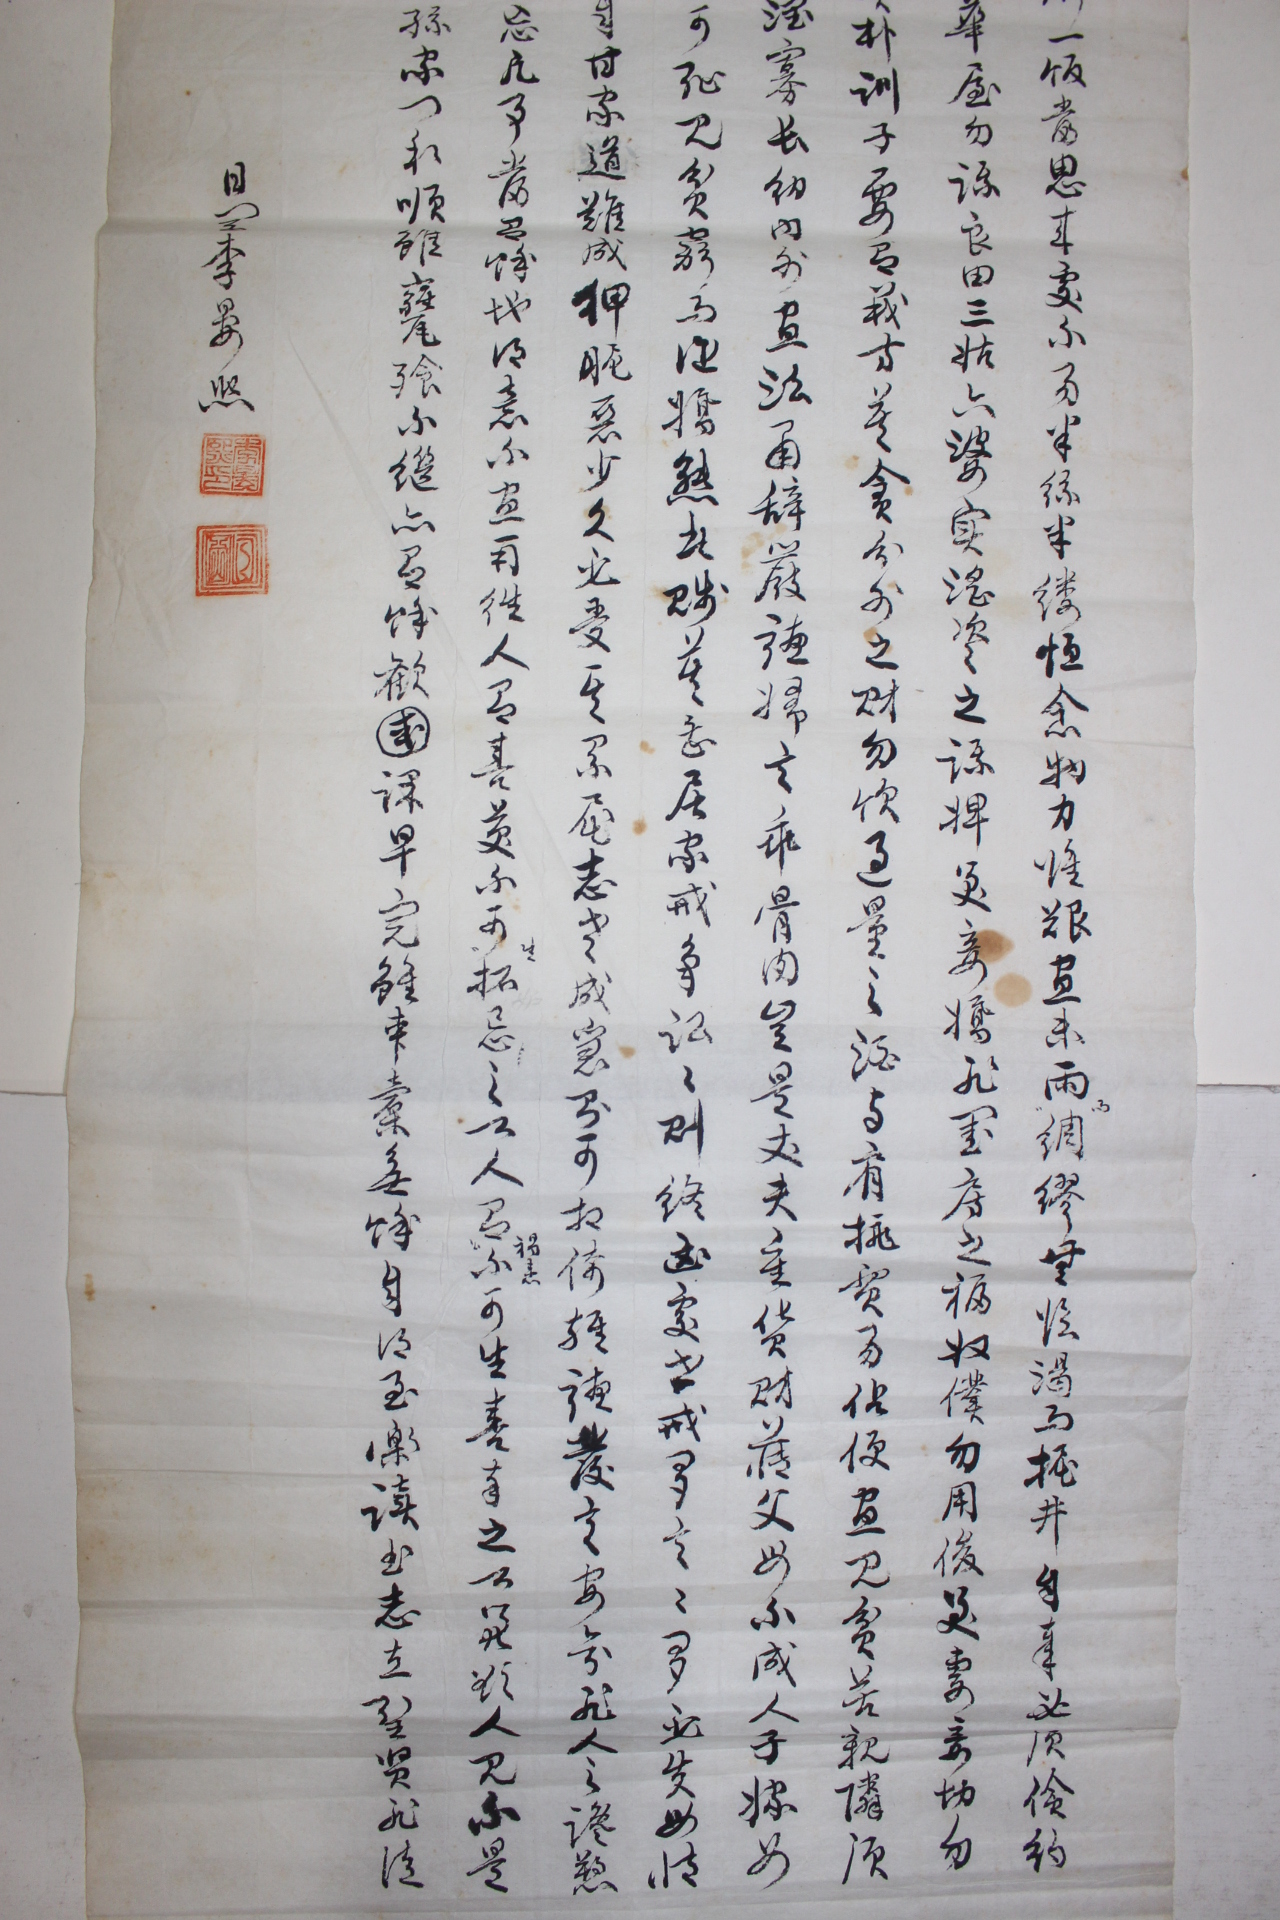 一飯當思來處不易半絲半縷恒念物力惟艱宜未雨而綢繆無臨渴而掘井自奉必須儉約
華屋勿謀良田三姑六婆實淫盜之謀婢美妾嬌非閨房之福奴僕勿用俊美妻妾切勿
質朴訓子要有義方莫貪分外之財勿飲過量之酒与肩挑貿易佔便宜見貧苦親隣須
寡長幼內外宜法肅辭嚴聽婦言乖骨肉豈是丈夫重貨財薄父母不成人子嫁女
可恥見貧窮而作驕態者賤莫甚居家戒爭訟々則終凶處世戒多言々多必失毋恃
自甘家道難成狎昵惡少久必受其累屈志老成急則可相倚輕聽發言安知非人之譖愬
忘凡事當留餘地得意不宜再往人有喜慶不可生妬忌之心人有禍患不可生喜幸之心善欲人見不是
孫家門和順雖饔飧不繼亦有餘歡國課早完雖囊橐無餘自得至樂讀書志在聖賢非徒
李